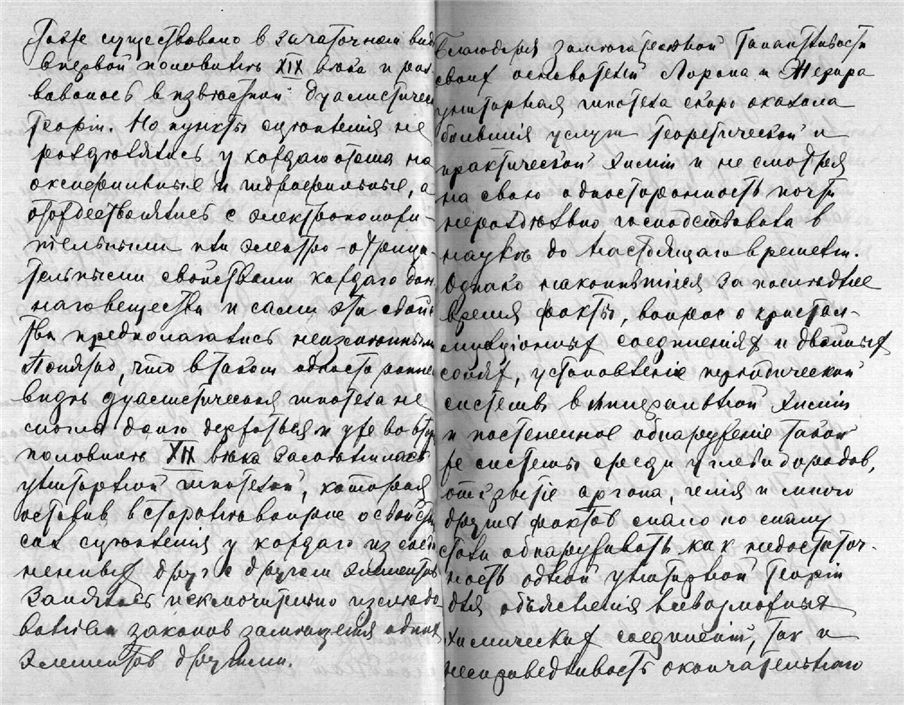 Тоже существовало в зачаточном виде
в первой половинѣ XIX вѣка и раз
вивалось в извѣстной дуалистическ
теорiи. Но пункты сцѣпленiя не
раздѣлялись у каждаго атома на
оксифильные и гидрофильные, а
отождествлялись с электроположи-
тельными или электро-отрица
тельными свойствами каждаго дан
наго вещества и сами эти свойс
тва предполагались неизмѣнными
Понятно, что в таком одностороннем
видѣ дуалистическая гипотеза не
могла долго держаться и уже во втор
половинѣ XIX вѣка заслонилась
унитарной гипотезой, которая
оставив в сторонѣ вопрос о свойст
вах сцѣпленiя у каждаго из соеди
ненных друг с другом элементов
занялась исключительно изслѣдо
ванiем законов замѣщенiя одних
элементов другими.
Благодаря замѣчательной талантливости
своих основателей Лорана и Жерара
унитарная гипотеза скоро оказала
большiя услуги теоретической и
практической химiи и не смотря
на свою односторонность почти
нераздѣльно господствовала в
наукѣ до настоящаго времени.
Однако накопившiеся за послѣднее
время факты, вопрос о кристал-
лизацiонных соединенiях и двойных
солях, установленiе перiодической
системы в минеральной химiи
и постепенное обнаруженiе такой
же системы среди углеводородов,
открытiе аргона, гелiя и много
других фактов стало по
обнаруживать как недостаточ-
ность одной унитарной теорiи
для объясненiя всевозможных
химических соединенiй, так и
несправедливость окончательнаго